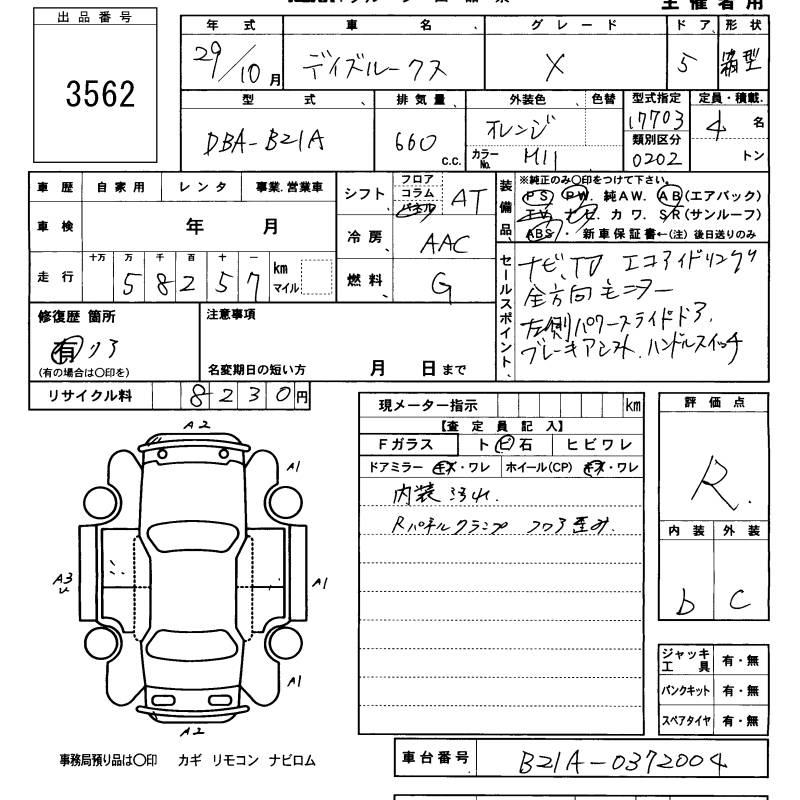 主催者用
出品番号
3562
年式 車名 グレード ドア 形状
29/10月 デイズルークス X 5 箱型
型式 排気量 外装色 色替 型式指定 定員・積載
DBA-B21A 660 c.c. オレンジ 17703 4 名
類別区分
カラーNo. M11 0202 トン
車歴 自家用 レンタ 事業.営業車
車検 年 月
走行 十万 万 千 百 十 一
5 8 2 5 7 km マイル
シフト フロア コラム パネル AT
冷房 AAC
燃料 G
装備品
※純正のみ〇印をつけて下さい。
PS PW. 純AW. AB(エアバック)
TV ナビ カワ. SR(サンルーフ)
ABS・新車保証書←(注)後日送りのみ
セールスポイント
ナビ、TV エコアイドリング
全方向モニター
左側パワースライドドア
ブレーキアシスト. ハンドルスイッチ
修復歴 箇所
有 リア
(有の場合は〇印を)
注意事項
名変期日の短い方 月 日まで
リサイクル料 8230円
現メーター指示 km
【査定員記入】
Fガラス ト ビ 石 ヒビワレ
ドアミラー キズ・ワレ ホイール(CP) キズ・ワレ
内装汚れ.
Rパネルクランプ フロア歪み.
評価点
R.
内装 外装
b C
A2
A1
A3
A1
A1
A2
ジャッキ工具 有・無
パンクキット 有・無
スペアタイヤ 有・無
事務局預り品は〇印 カギ リモコン ナビロム
車台番号 B21A-0372004